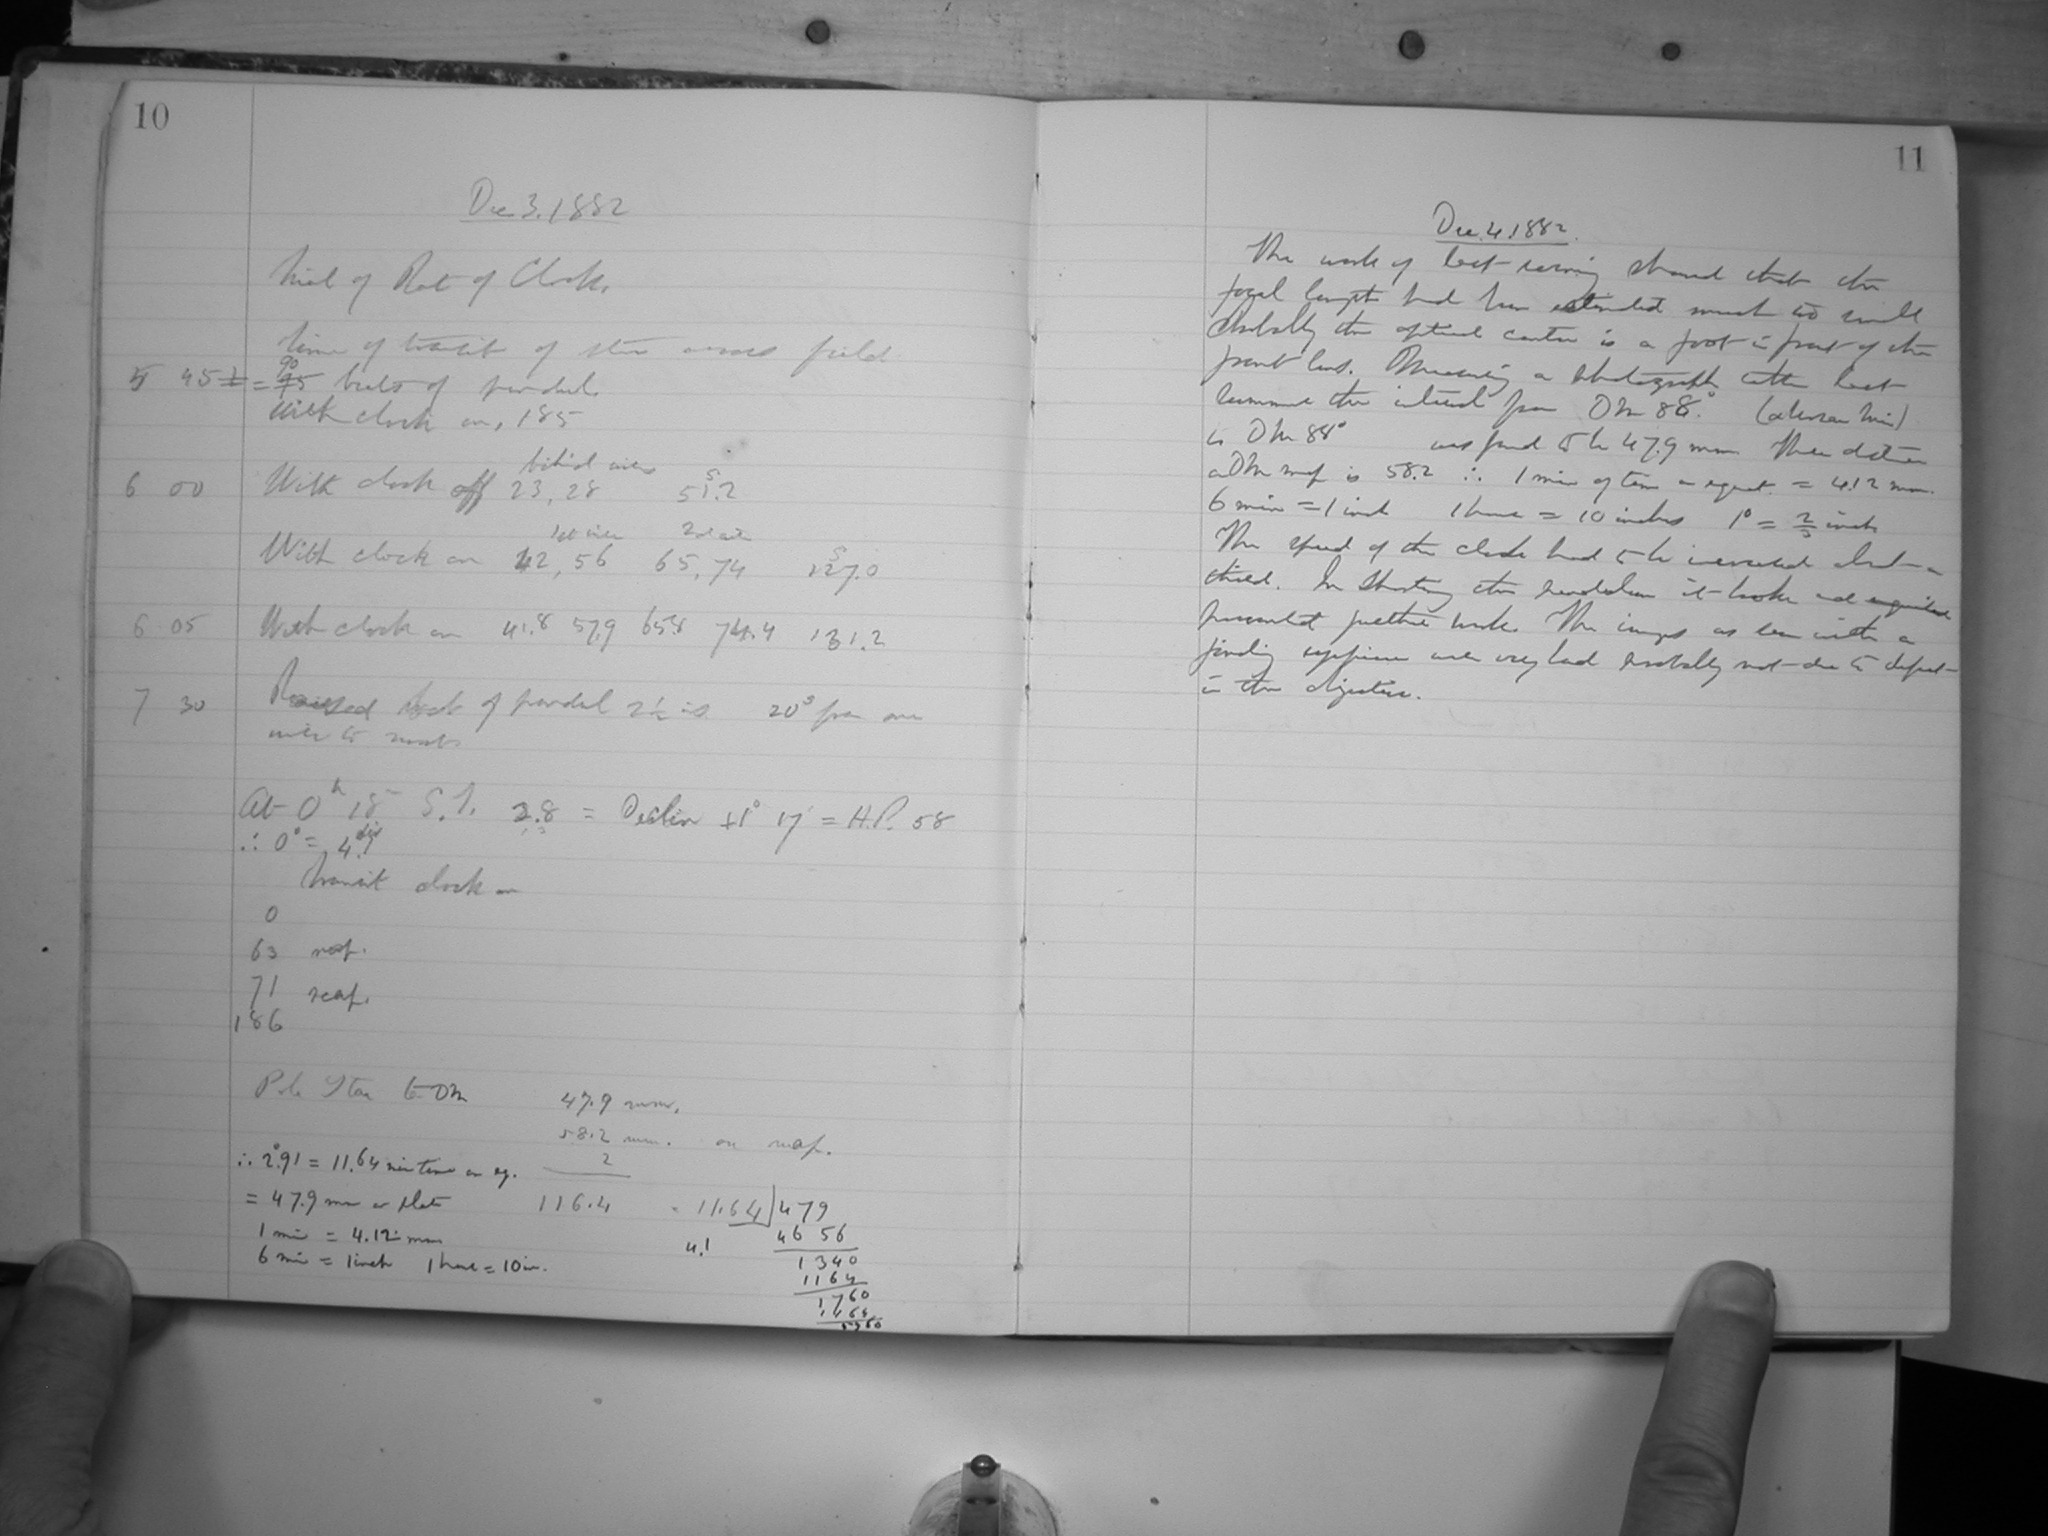 10
Dec 3. 1882
Trial of Rate of Clock.
Time of transit of star across field
5 45 = 90 beats of pendul.
With clock on, 185
With clock off 23, 28 51.2
1st wire 2nd wire
With clock on 42, 56 65, 74 127.0
6 00
6 05 With clock on 41.8 57.9 65.8 74.4 131.2
7 30 of pendul 20° from one
wire to next.
At 0h 18m S.T. 2.8 = Declin +1° 17' = H.P. 58
∴ 0° = 4.1 div
Transit clock on
0
63 reap.
71 reap.
186
Pole Star to DM 47.9 mm.
58.2 mm. on map.
2
∴ 2°.91 = 11.64 min time on eq.
= 47.9 mm on plate 116.4 11.64 479
1 min = 4.12 mm 4656
4.1
6 min = 1 inch 1 hour = 10 in. 1340
1164
1760
11
Dec. 4. 1882.
The work of last evening showed that the
focal length had been estimated much too small
Probably the optical center is a foot in front of the
front lens. Measuring a photograph taken last
summer the interval from DM 88° (alpha Ursae Min)
to DM 88° was found to be 47.9 mm. Their distance
on DM map is 58.2 ∴ 1 min of time on equat. = 4.12 mm.
6 min = 1 inch 1 hour = 10 inches 1° = 2/3 inch
The speed of the clock had to be increased about a
third. In shortening the pendulum it broke and
prevented further work. The image as seen with a
finding eyepiece was very bad probably not due to defect
in the objective.